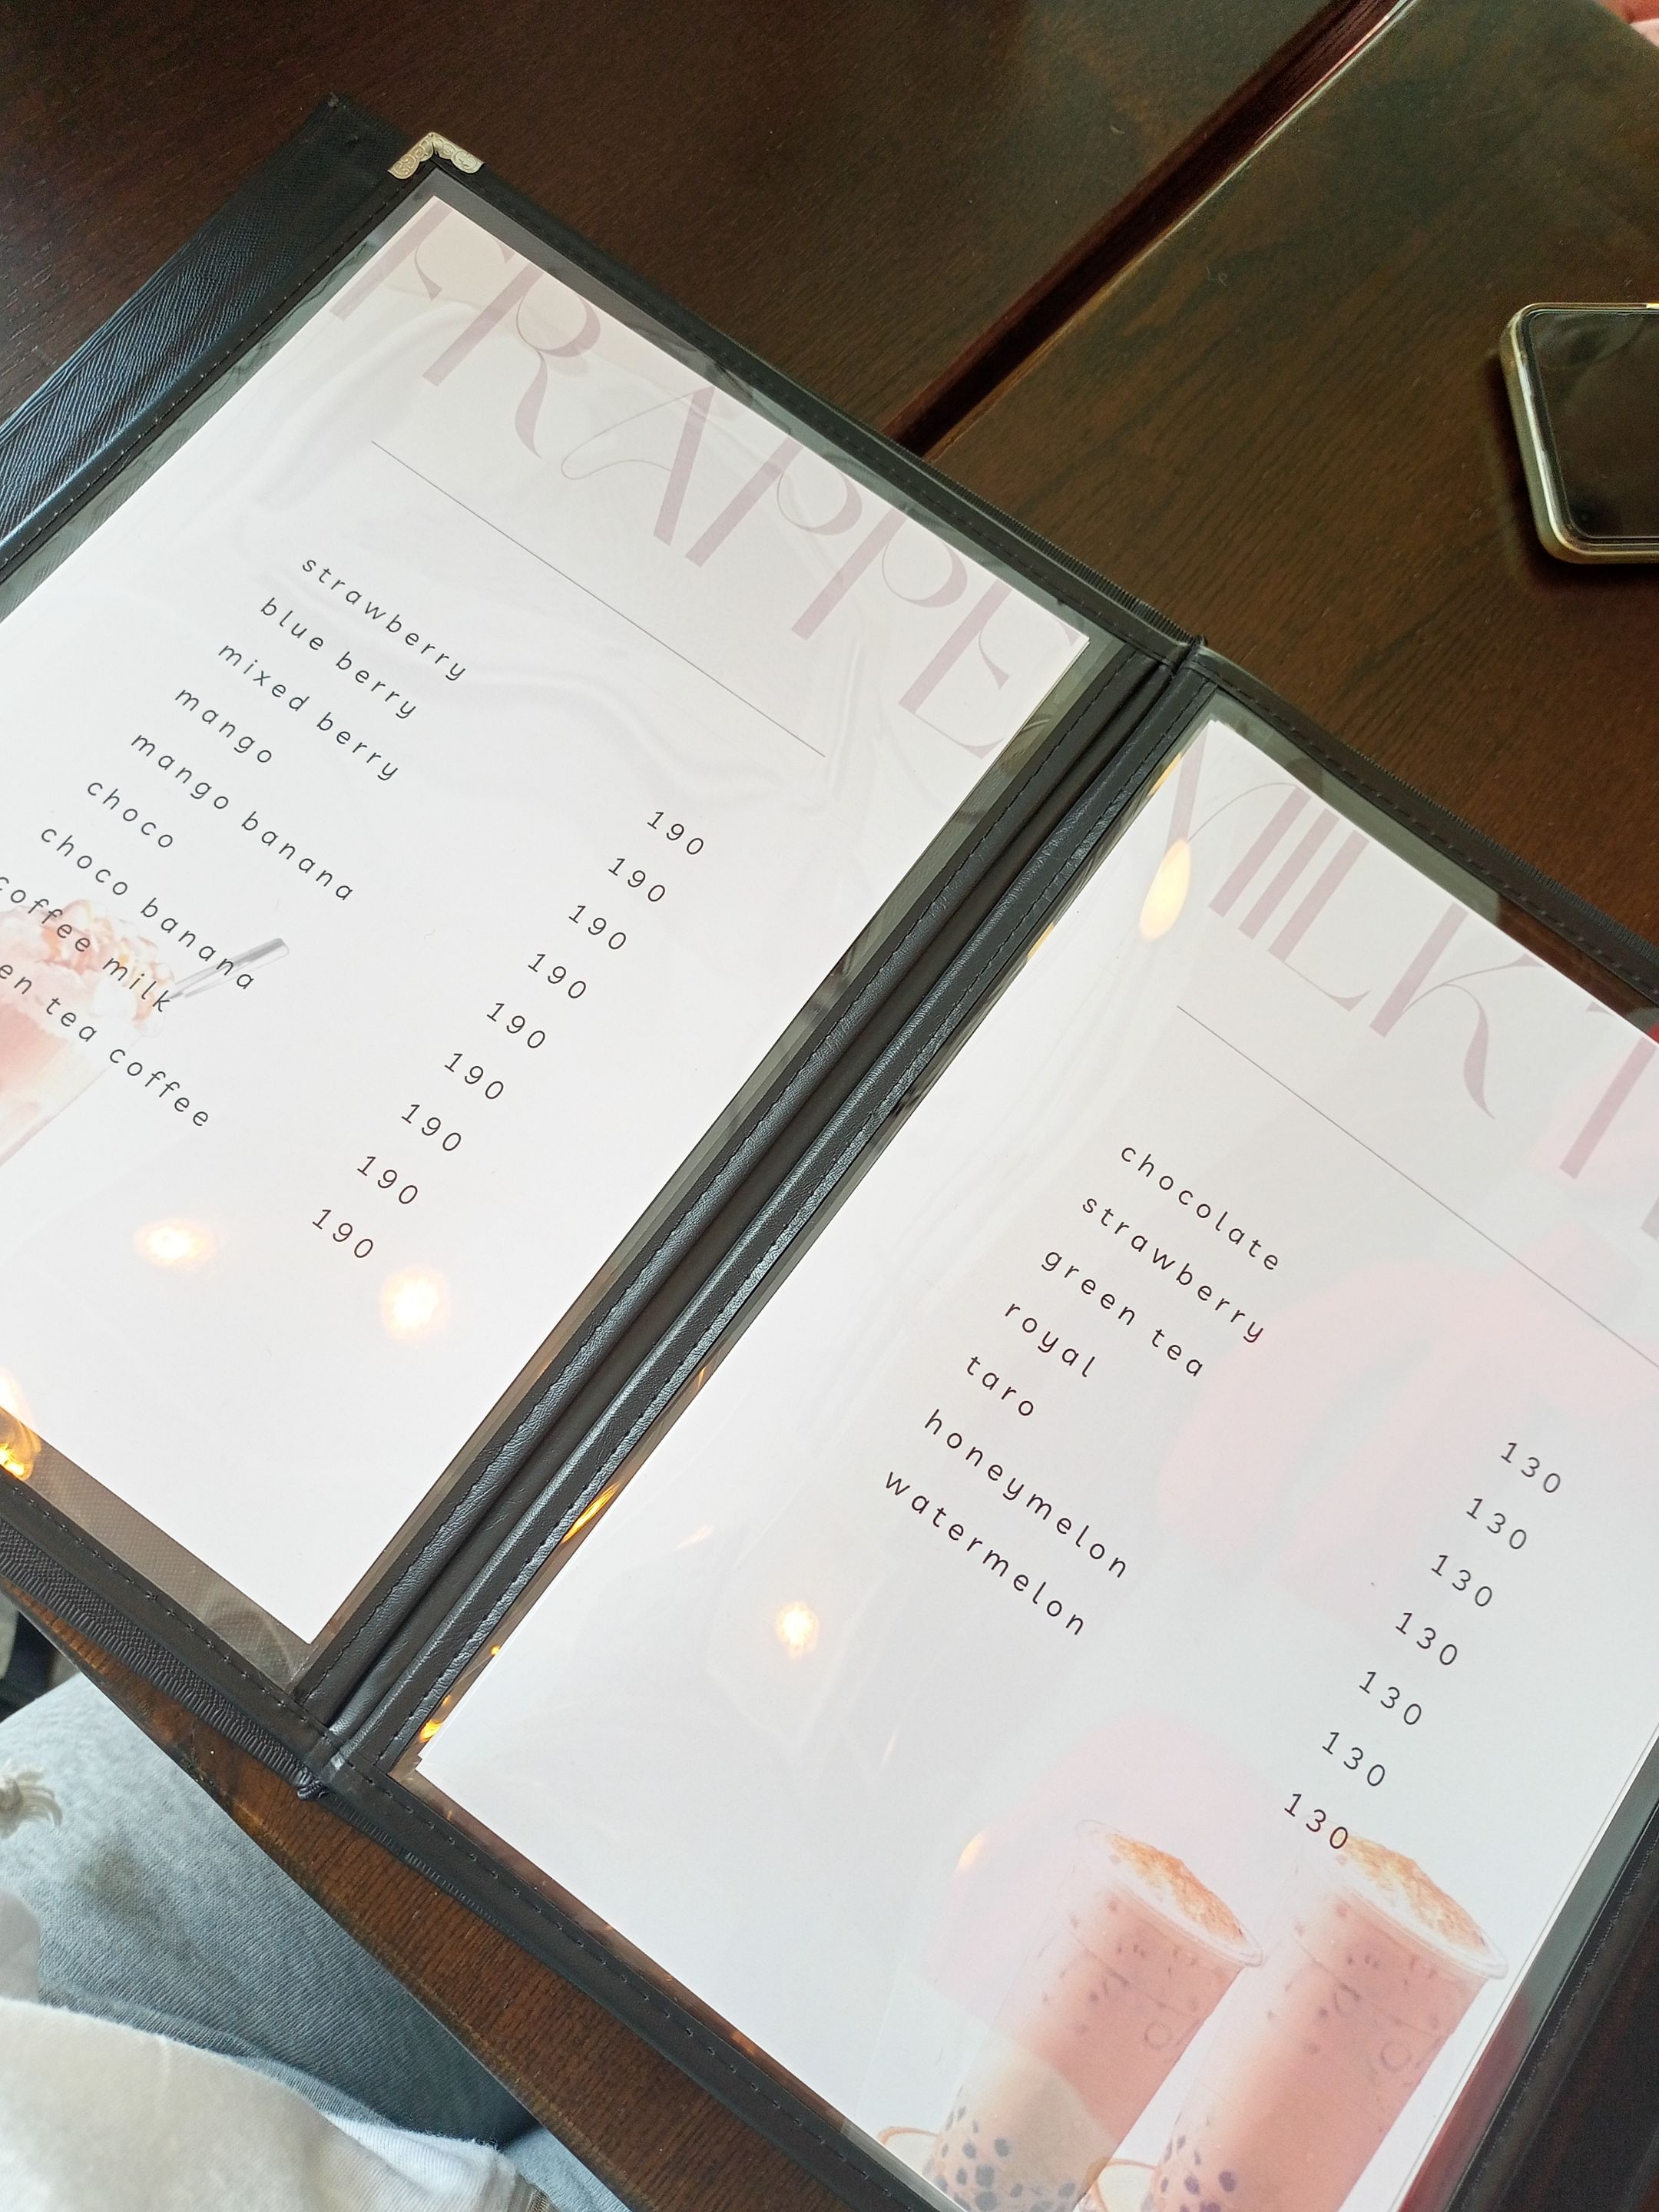 FRAPPE
strawberry 190
blue berry 190
mixed berry 190
mango 190
mango banana 190
choco 190
choco banana 190
coffee milk 190
tea coffee 190
MILK
chocolate 130
strawberry 130
green tea 130
royal 130
taro 130
honeymelon 130
watermelon 130